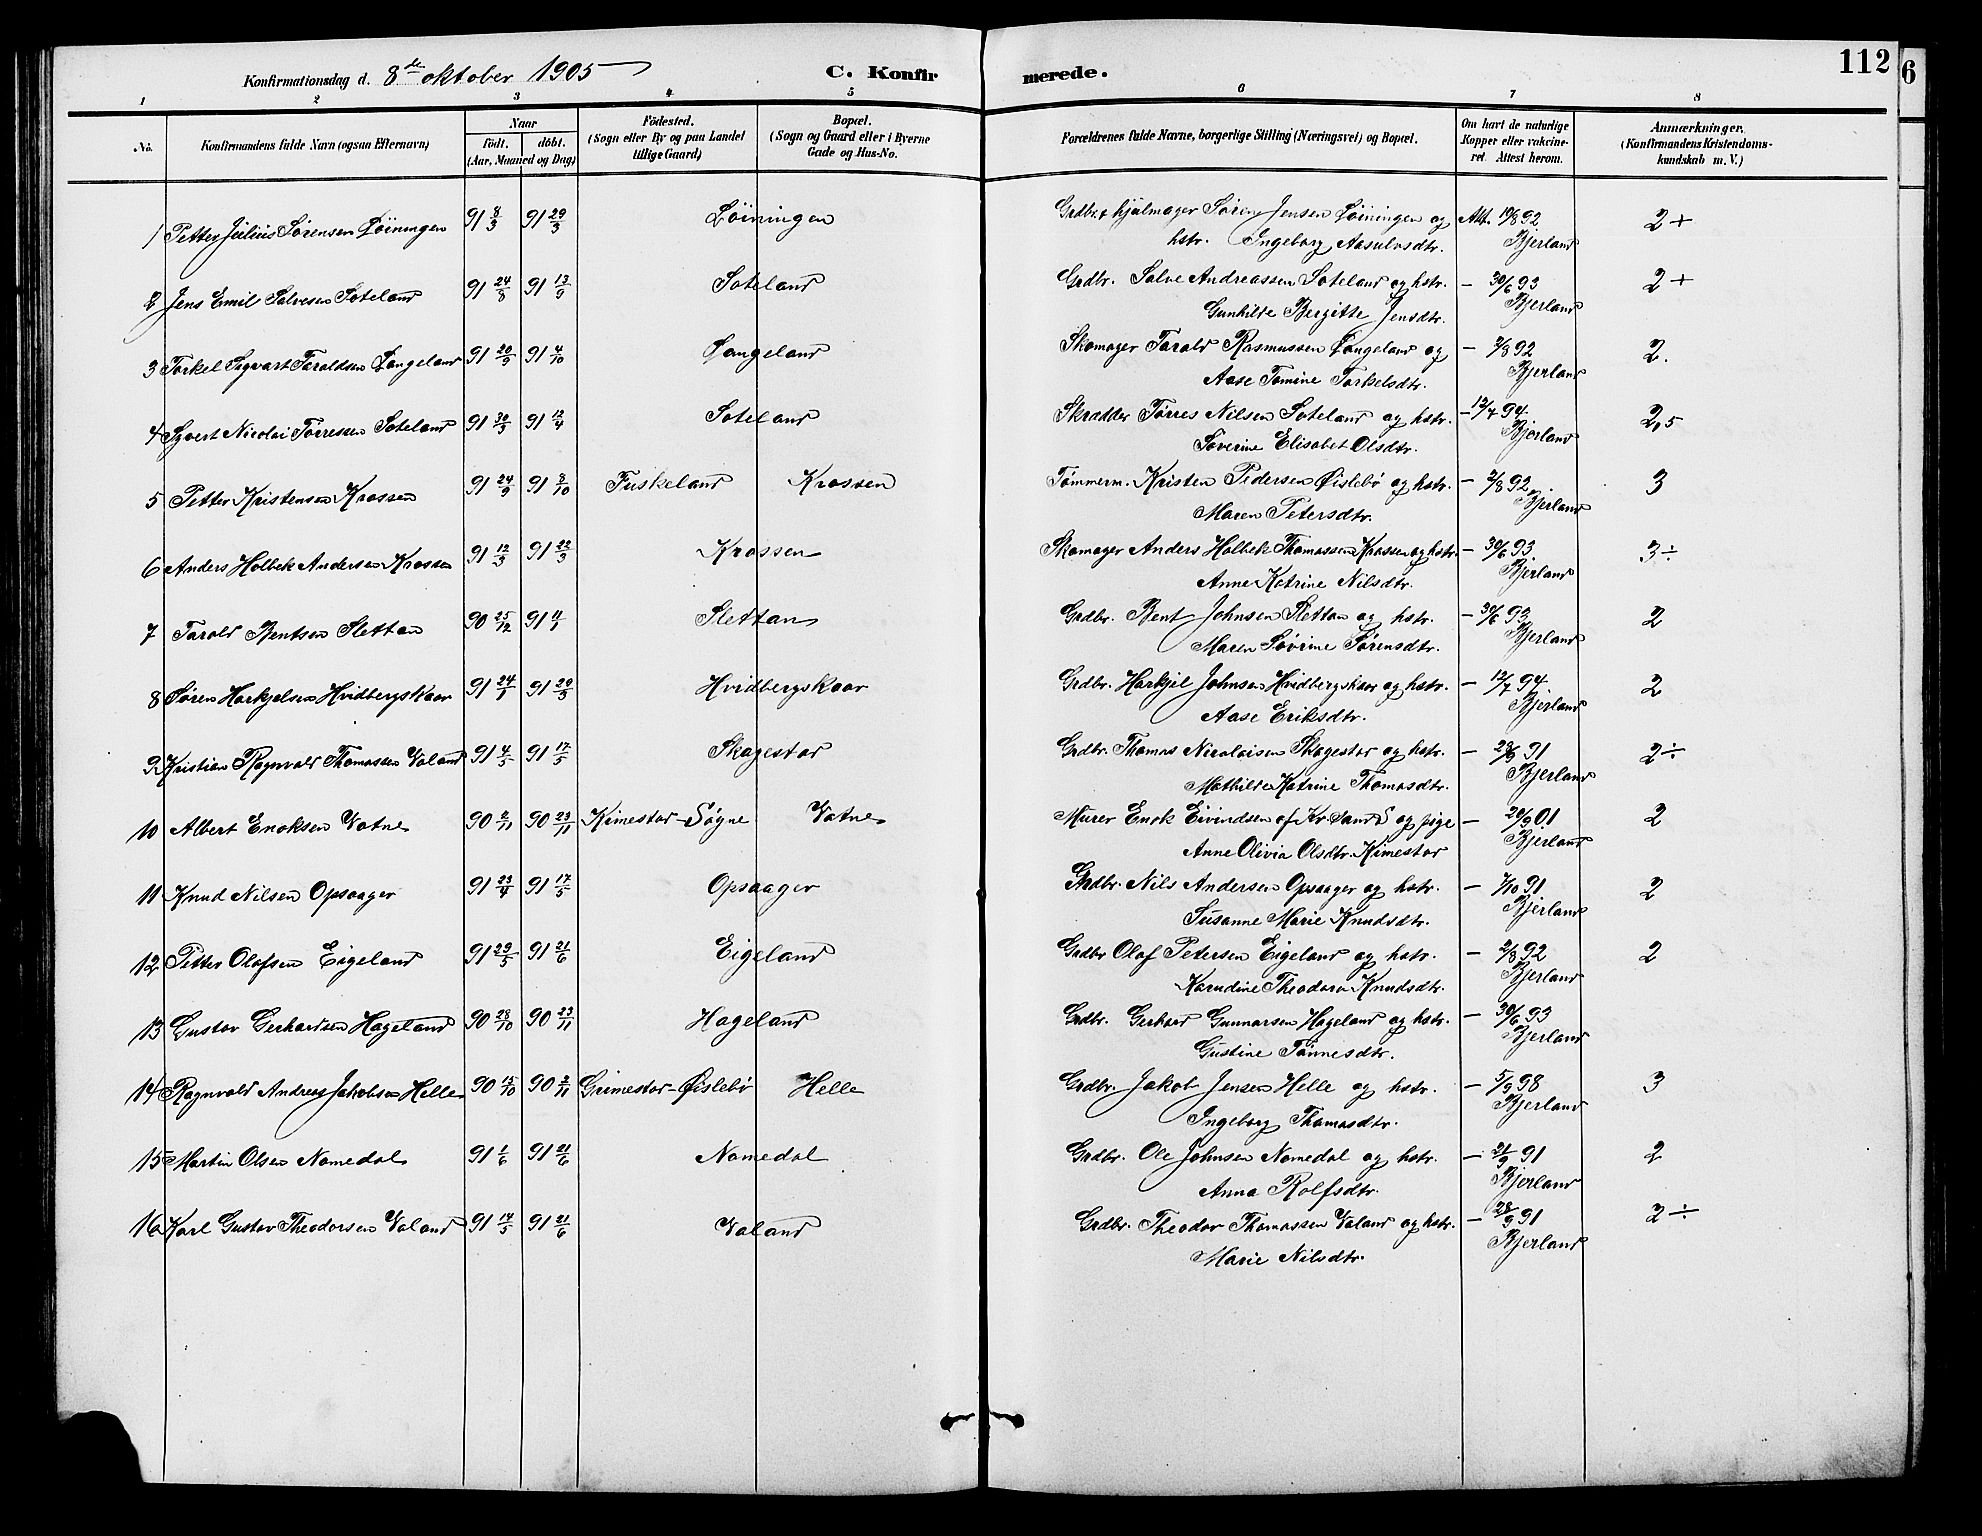 112
6
Konfirmationsdag d. 8de oktober 1905
C. Konfir merede.
1 2 3 4 5 6 7 8
No.
Konfirmandens fulde Navn (ogsaa Efternavn)
Naar
födt. döbt.
(Aar, Maaned og Dag)
Födested.
(Sogn eller By og paa Landet
tillige Gaard)
Bopæl.
(Sogn og Gaard eller i Byerne
Gade og Hus-No.
Forældrenes fulde Navne, borgerlige Stilling (Næringsvei) og Bopæl.
Om havt de naturlige
Kopper eller vakcine-
ret. Attest herom.
Anmærkninger.
(Konfirmandens Kristendoms-
kundskab m. V.)
1 Petter Julius Sørensen Løiningen 91 8/3 91 29/3 Løiningen Grdbr. & hjulmager Søren Jensen Løiningen og Att. 19/8 92 2+
hstr. Ingeborg Aasulvsdtr. Bjerland
2 Jens Emil Salvesen Soteland 91 24/8 91 13/9 Soteland Grdbr. Salve Andreassen Soteland og hstr. — 30/6 93 2+
Gunhilde Bergitte Jensdtr. Bjerland
3 Torkel Sigvart Taraldsen Langeland 91 20/9 91 4/10 Langeland Skomager Tarald Rasmussen Langeland og — 2/8 92 2.
Aase Tomine Torkelsdtr. Bjerland
4 Syvert Nicolai Tørressen Soteland 91 30/3 91 12/4 Soteland Skrædder Tørres Nilsen Soteland og hstr. — 12/7 94 2,5
Severine Elisabet Olsdtr. Bjerland
5 Petter Kristensen Krossen 91 24/9 91 8/10 Fuskeland Krossen Tømmerm. Kristen Pedersen Øislebø og hstr. — 2/8 92 3
Maren Petersdtr. Bjerland
6 Anders Holbek Andersen Krossen 91 12/3 91 22/3 Krossen Skomager Anders Holbek Thomassen Krossen og hstr. — 30/6 93 3÷
Anne Katrine Nilsdtr. Bjerland
7 Tarald Bentsen Slettan 90 25/12 91 11/1 Slettan Grdbr. Bent Johnsen Slettan og hstr. — 30/6 93 2
Maren Søvrine Sørensdtr. Bjerland
8 Søren Harkjelsen Hvidbergskaar 91 24/1 91 20/3 Hvidbergskaar Grdbr. Harkjel Johnsen Hvidbergskaar og hstr. — 12/7 94 2
Aase Eriksdtr. Bjerland
9 Kristian Ragnvald Thomassen Valand 91 4/5 91 17/5 Skagestar Grdbr. Thomas Nicolaisen Skagestar og hstr. — 28/9 91 2÷
Mathilde Katrine Thomasdtr. Bjerland
10 Albert Enoksen Vatne 90 2/11 90 23/11 Kimestar-Søgne Vatne Murer Enok Eivindsen af Kr.sand S og pige — 20/9 01 2
Anne Olivia Olsdtr. Kimestar Bjerland
11 Knud Nilsen Opsaager 91 23/4 91 17/5 Opsaager Grdbr. Nils Andersen Opsaager og hstr. — 7/10 91 2
Susanne Marie Knudsdtr. Bjerland
12 Petter Olafsen Eigeland 91 29/5 91 21/6 Eigeland Grdbr Olaf Petersen Eigeland og hstr. — 2/8 92 2
Karudine Theodora Knudsdtr. Bjerland
13 Gustav Gerhardsen Hageland 90 28/10 90 23/11 Hageland Grdbr. Gerhard Gunnarsen Hageland og hstr. — 30/6 93
Gustine Tønnesdtr. Bjerland
14 Ragnvald Andreas Jakobsen Helle 90 15/10 90 2/11 Grimestar-Øislebø Helle Grdbr. Jakob Jensen Helle og hstr. — 5/9 98 3
Ingeborg Thomasdtr. Bjerland
15 Martin Olsen Nomedal 91 1/6 91 21/6 Nomedal Grdbr. Ole Johnsen Nomedal og hstr. — 21/9 91 2
Anna Rolfsdtr. Bjerland
16 Karl Gustav Theodorsen Valand 91 14/5 91 21/6 Valand Grdbr. Theodor Thomassen Valand og hstr. — 28/9 91 2÷
Marie Nilsdtr. Bjerland